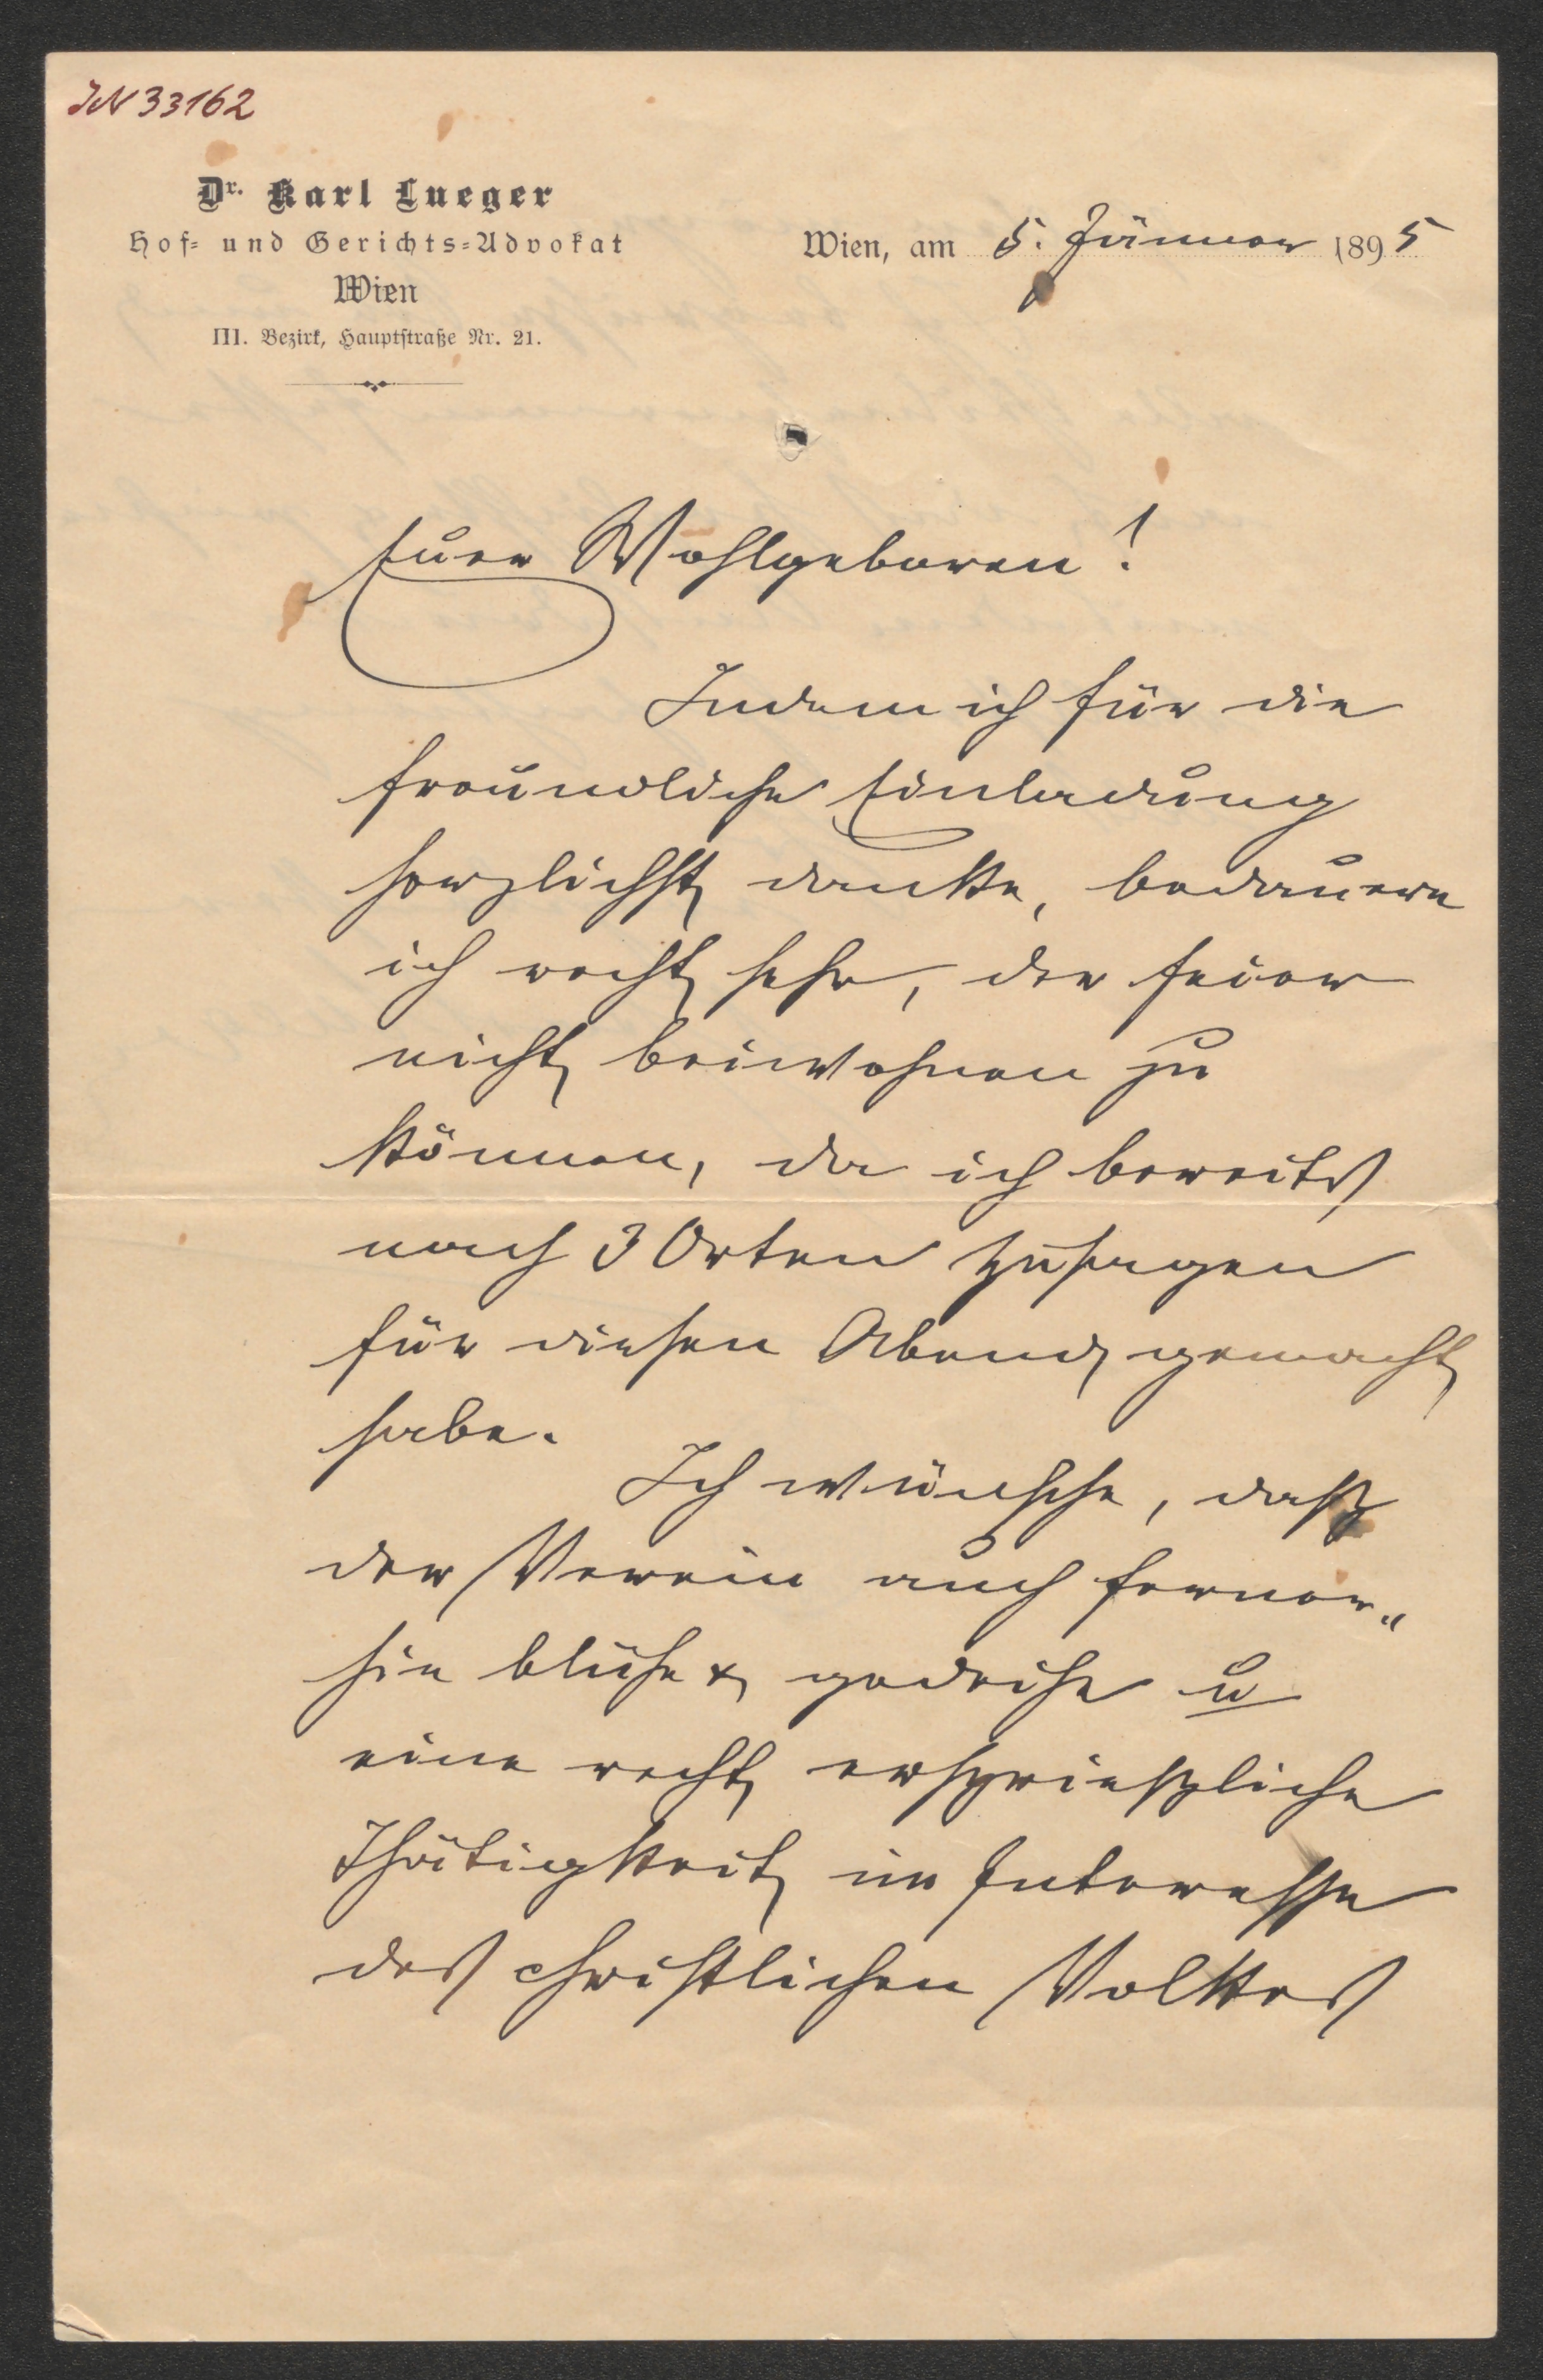 IN 33162
Dr. Karl Lueger
Hof- und Gerichts-Advokat
Wien
III. Bezirk, Hauptstraße Nr. 21.
Wien, am 5. Jänner 1895
Euer Wohlgeboren!
Indem ich für die
freundliche Einladung
herzlichst danke, bedauere
ich recht sehr, der Feier
nicht beiwohnen zu
können, da ich bereits
nach 3 Orten Zusagen
für diesen Abend gemacht
habe.
Ich wünsche, daß
der Verein auch ferner-
hin blühe & gedeihe u
eine recht ersprießliche
Thätigkeit im Interesse
des christlichen Volkes